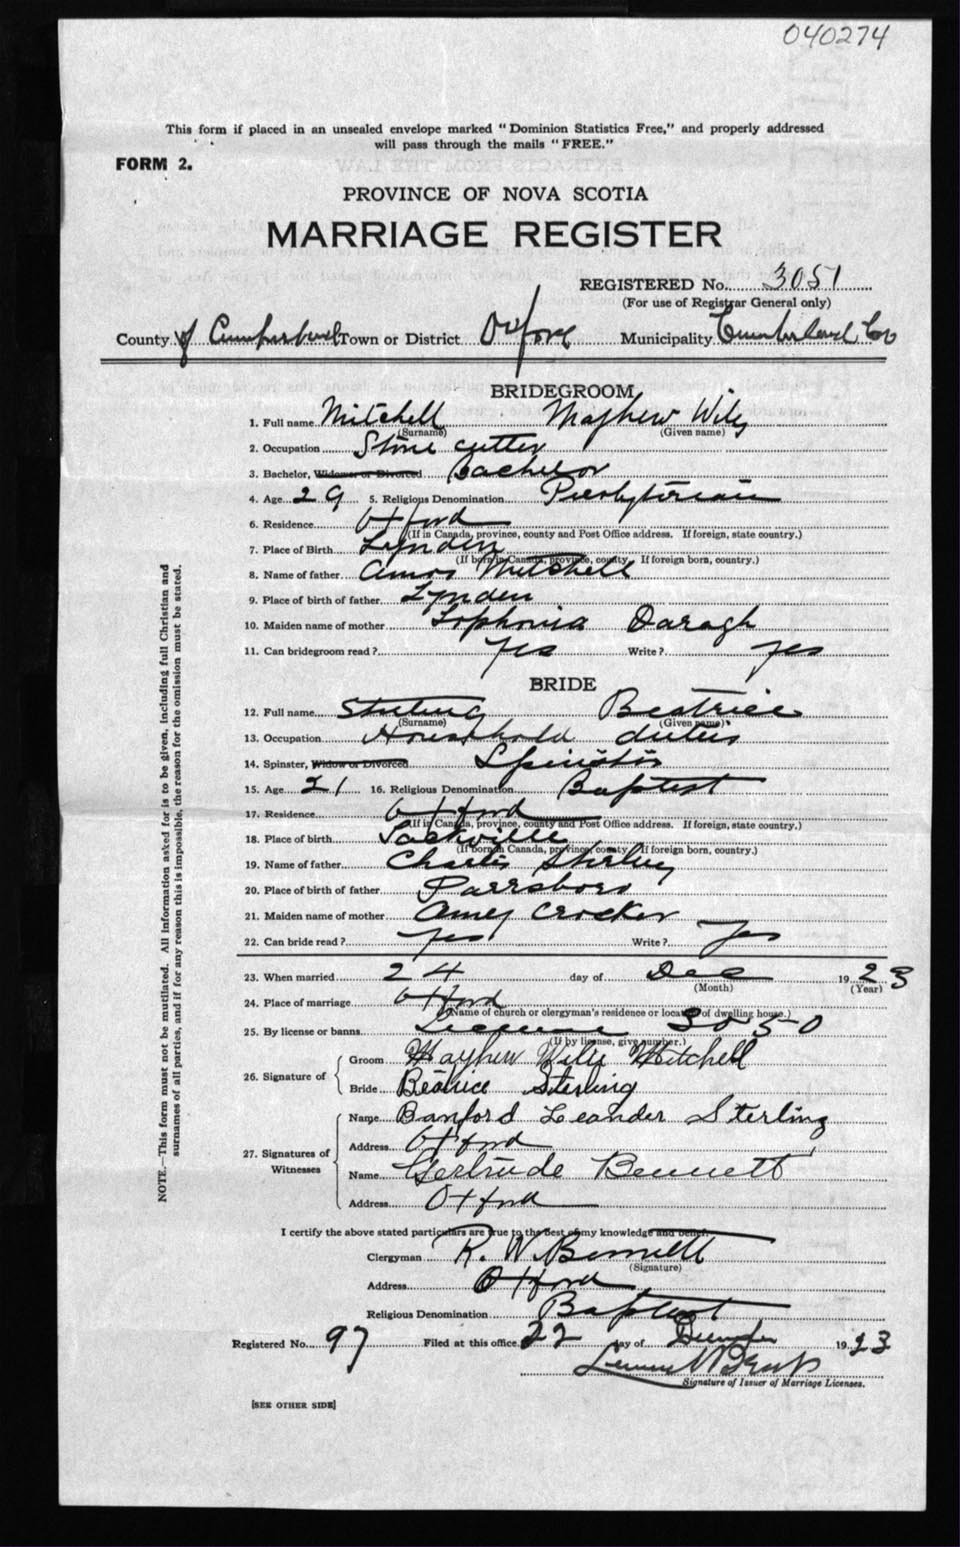 040274
This form if placed in an unsealed envelope marked "Dominion Statistics Free," and properly addressed
will pass through the mails "FREE."
FORM 2.
PROVINCE OF NOVA SCOTIA
MARRIAGE REGISTER
REGISTERED No. 3051
(For use of Registrar General only)
County of Cumberland Town or District Oxford Municipality Cumberland Co
BRIDEGROOM
1. Full name Mitchell Mayhew
(Surname) (Given name)
2. Occupation Stone cutter
3. Bachelor, Widower or Divorced Bachelor
4. Age 29 5. Religious Denomination Presbyterian
6. Residence Oxford
(If in Canada, province, county and Post Office address. If foreign, state country.)
7. Place of Birth Lynden
(If born in Canada, province, county. If foreign born, country.)
8. Name of father Amos Mitchell
9. Place of birth of father Lynden
10. Maiden name of mother Daragh
11. Can bridegroom read? yes Write? yes
BRIDE
12. Full name Beatrice
(Surname) (Given name)
13. Occupation Household duties
14. Spinster, Widow or Divorced Spinster
15. Age 21 16. Religious Denomination Baptist
17. Residence Oxford
(If in Canada, province, county and Post Office address. If foreign, state country.)
18. Place of birth Sackville
(If born in Canada, province, county. If foreign born, country.)
19. Name of father Charles
20. Place of birth of father Parrsboro
21. Maiden name of mother Amey Crocker
22. Can bride read? yes Write? Yes
23. When married 24 day of Dec 1923
(Month) (Year)
24. Place of marriage Oxford
(Name of church or clergyman's residence or location of dwelling house.)
25. By license or banns License 3050
(If by license, give number.)
26. Signature of Groom Mayhew Mitchell
Bride Beatrice Sterling
27. Signatures of Witnesses Name Banford Leander Sterling
Address Oxford
Name Gertrude Bennett
Address Oxford
I certify the above stated particulars are true to the best of my knowledge and belief.
Clergyman R. W. Bennett
(Signature)
Address Oxford
Religious Denomination Baptist
Registered No. 97 Filed at this office 22 day of December 1923
Signature of Issuer of Marriage Licenses.
[SEE OTHER SIDE]
NOTE.—This form must not be mutilated. All information asked for is to be given, including full Christian and
surnames of all parties, and if for any reason this is impossible, the reason for the omission must be stated.